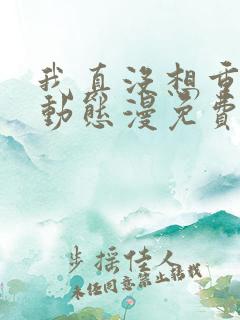 我真没想重
動態漫免費
步摇佳人
未经同意禁止转载